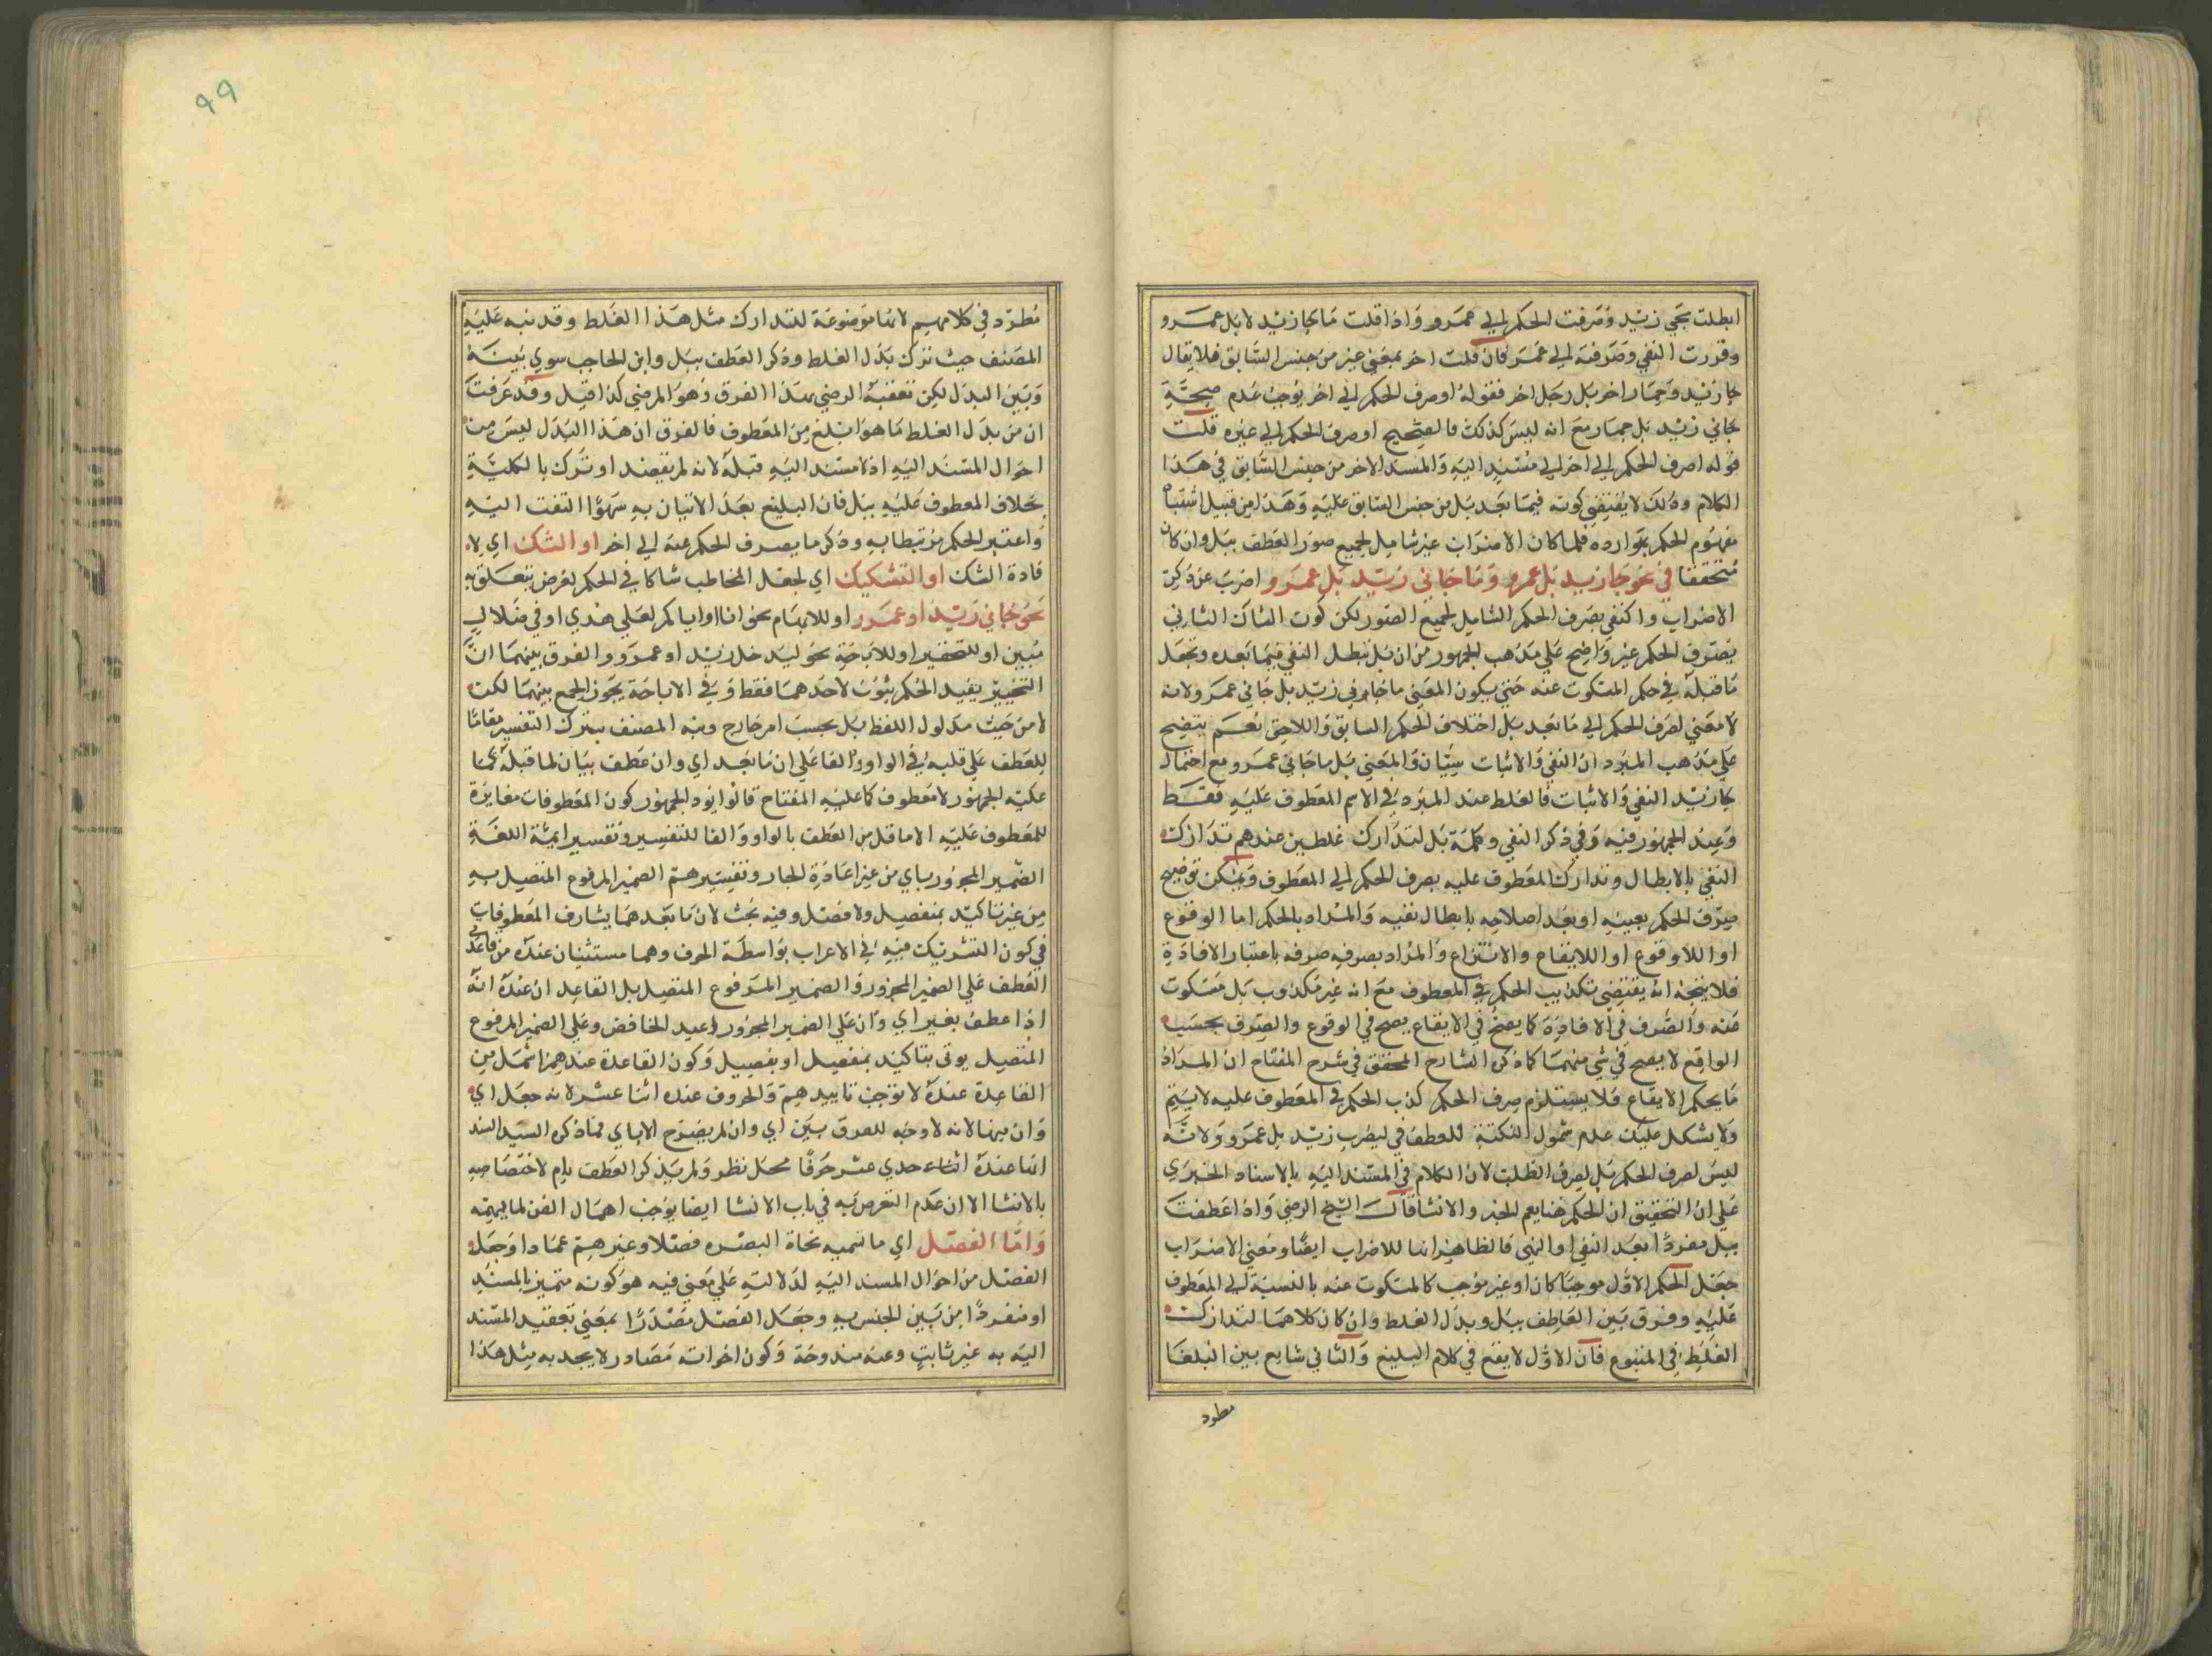 ابطلت مجي زيد وصرفت الحكم الي عمرو واذا قلت ما جا زيد لا بل عمرو
وقررت النفي وصرفته الي عمرو فان قلت اخر بمعني غير من جنس السابق فلا يقال
جا زيد وحمار اخر بل رجل اخر فقوله او صرف الحكم الي اخر يوجب عدم صحة
جاني زيد بل حمار مع انه ليس كذلك فالصحيح او صرف الحكم الي غيره قلت
قوله اصرف الحكم الي اخر الي مسند اليه والمسند الاخر من جنس السابق في هذا
الكلام وذلك لا يقتضي كونه فيما بعد بل من جنس السابق عليه وهذا من قبيل اشتباه
مفهوم الحكم بموارده فلما كان الاضراب غير شامل لجميع صور العطف ببل وان كان
متحققا في نحو جا زيد بل عمرو وما جاني زيد بل عمرو اضرب عن ذكر
الاضراب واكتفي بصرف الحكم الشامل لجميع الصور لكن كون المثال الثاني
يصرف الحكم غير واضح علي مذهب الجمهور من ان بل تبطل النفي فيما بعده وتجعل
ما قبله في حكم المسكوت عنه حتي يكون المعني ما جاني زيد بل جاني عمرو لانه
لا معني لصرف الحكم الي ما بعد بل اختلاف الحكم السابق واللاحق نعم يتضح
علي مذهب المبرد ان النفي والاثبات سيان والمعني بل ما جاني عمرو مع احتمال
جا زيد النفي والاثبات فالغلط عند المبرد في الاسم المعطوف عليه فقط
وعند الجمهور فيه وفي ذكر النفي وكلمة بل لتدارك غلطين عندهم تدارك
النفي بالابطال وتدارك المعطوف عليه بصرف الحكم الي المعطوف ويمكن توضيح
صرف الحكم بعينه او بعد اصلاحه بابطال نفيه والمراد بالحكم اما الوقوع
او اللاوقوع او الايقاع والانتزاع والمراد بصرفه صرفه باعتبار الافادة
فلا يتجه انه يقتضي تكذيب الحكم في المعطوف مع انه غير مكذوب بل مسكوت
عنه والصرف في الافادة كما يصح في الايقاع يصح في الوقوع والصرف بحسب
الواقع لا يصح في شي منهما كما ذكره الشارح المحقق في شرح المفتاح ان المراد
ما يحكم الايقاع فلا يستلزم صرف الحكم كذب الحكم في المعطوف عليه لا يتم
ولا يشكل عليك عدم شمول النكتة للعطف في ليضرب زيد بل عمرو ولانه
ليس لصرف الحكم بل لصرف الطلب لان الكلام في المسند اليه بالاسناد الخبري
علي ان التحقيق ان الحكم هنا يعم الخبر والانشا قال الشيخ الرضي واذا عطفت
ببل مفردا بعد النفي او النهي فالظاهر انها للاضراب ايضا ومعني الاضراب
جعل الحكم الاول موجبا كان او غير موجب كالمسكوت عنه بالنسبة الي المعطوف
عليه وفرق بين العاطف ببل وبدل الغلط وان كان كلاهما لتدارك
الغلط في المتبوع فان الاول لا يقع في كلام البليغ والثاني شايع بين البلغا
مطرد
٩٩
مطرد في كلامهم لانها موضوعة لتدارك مثل هذا الغلط وقد نبه عليه
المصنف حيث ترك بدل الغلط وذكر العطف ببل وابن الحاجب سوي بينه
وبين البدل لكن تعقبه الرضي بهذا الفرق وهو المرضي كذا قيل وقد عرفت
ان من بدل الغلط ما هو ابلغ من المعطوف فالفرق ان هذا البدل ليس من
احوال المسند اليه اذ لا مسند اليه قبله لانه لم يقصد او ترك بالكلية
بخلاف المعطوف عليه ببل فان البليغ بعد الاتيان به سهوا التفت اليه
واعتبر الحكم مرتبطا به وذكر ما يصرف الحكم عنه الي اخر او الشك اي لا
فادة الشك او التشكيك اي لجعل المخاطب شاكا في الحكم لغرض يتعلق به
نحو جاني زيد او عمرو او للابهام نحو انا او اياكم لعلي هدي او في ضلال
مبين او للتخيير او للاباحة نحو ليدخل زيد او عمرو والفرق بينهما ان
التخيير يفيد الحكم بثبوت لاحدهما فقط وفي الاباحة يجوز الجمع بينهما لكن
لا من حيث مدلول اللفظ بل بحسب امر خارج ونبه المصنف بترك التفسير مقاما
للعطف علي قلبه في الواو والفا علي ان ما بعد اي وان عطف بيان لما قبله كما
عليه الجمهور لا معطوف كما عليه المفتاح قالوا يود الجمهور كون المعطوفات مغايرة
للمعطوف عليه الا ما قل من العطف بالواو والفا للتفسير وتفسير ايمة اللغة
الضمير المجرور باي من غير اعادة الجار وتفسيرهم الضمير المرفوع المتصل به
من غير تاكيد بمنفصل ولا فصل وفيه بحث لان ما بعدهما يشارف المعطوفات
في كون التشريك فيه في الاعراب بواسطة الحرف وهما مستثنيان عنده من قاعدة
العطف علي الضمير المجرور والضمير المرفوع المتصل بل القاعد ان عنده انه
اذا عطف بغير اي وان علي الضمير المجرور اعيد الخافض وعلي الضمير المرفوع
المتصل يوتي بتاكيد بمنفصل او بفصيل وكون القاعدة عندهم اشمل من
القاعدة عنده لا توجب تاييدهم والحروف عنده اثنا عشر لانه جعل اي
وان منها لانه لا وجه للفرق بين اي وان لم يصرح الا باي فما ذكره السيد السند
انها عنده احدي عشر حرفا محل نظر ولم يذكر العطف بام لاختصاصه
بالانشا الا ان عدم التعرض به في باب الانشا ايضا يوجب اهمال الفن لما يهمه
واما الفصل اي ما تسميه نحاة البصره فصلا وغيرهم عمادا وجعل
الفصل من احوال المسند اليه لدلالته علي معني فيه هو كونه متميز بالمسند
او منفردا من بين الجنس به وجعل الفصل مصدرا بمعني تعقيد المسند
اليه به غير ثابت وعنه مندوحة وكون اخواته مصادر لا يجد به مثل هذا